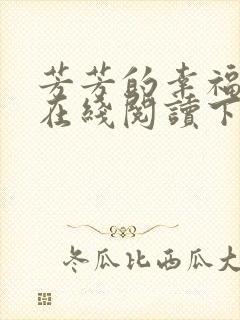 芳芳的幸福
在綫閱讀下
冬瓜比西瓜大